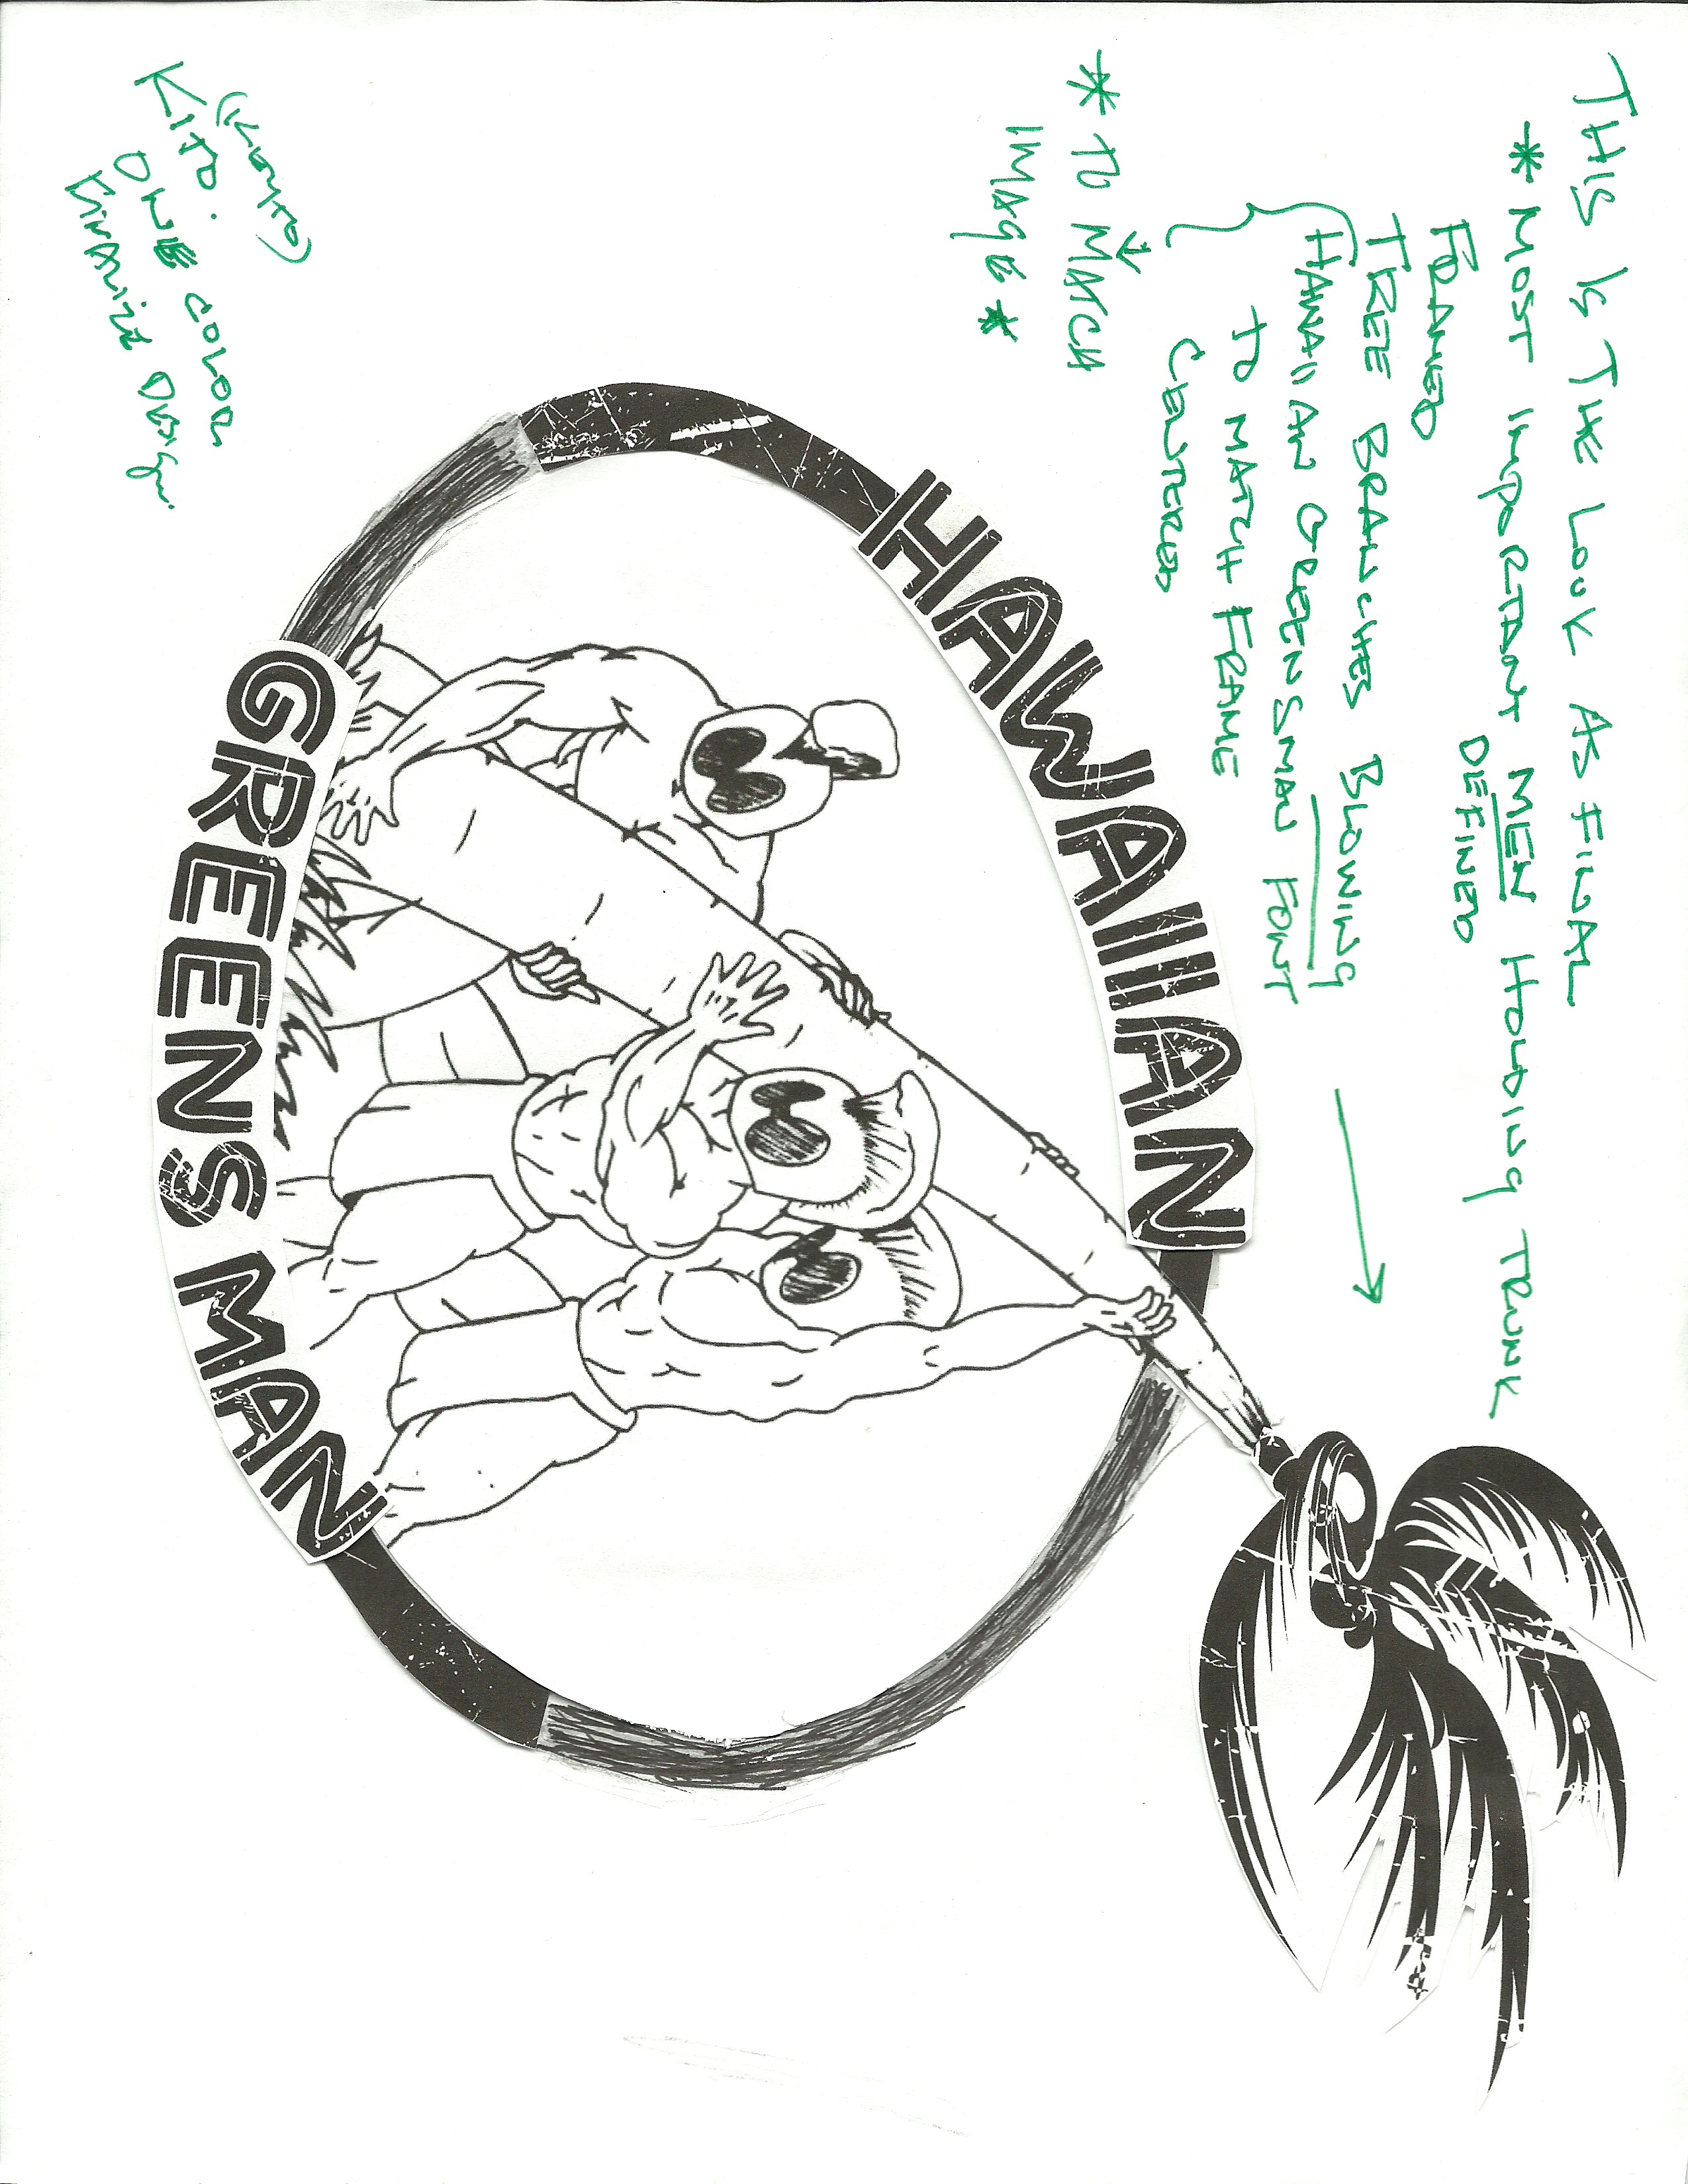 THIS IS THE LOOK AS FINAL
* MOST IMPORTANT MEN HOLDING TRUNK
DEFINED
FRAMED
TREE BRANCHES BLOWING
HAWAIIAN GREENSMAN FONT
TO MATCH FRAME
CENTERED
* TO MATCH
IMAGE *
HAWAIIAN
GREENS MAN
KITO.
ONE COLOR
FINALIZE DESIGN.